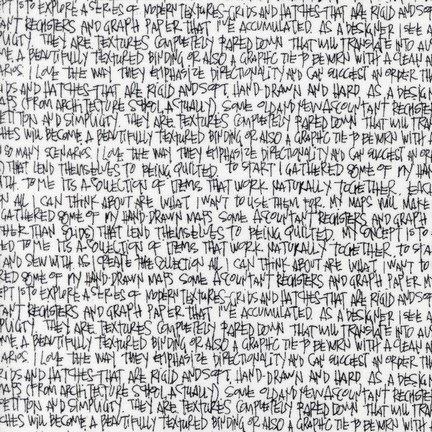 PT IS TO EXPLORE A SERIES OF MODERN TEXTURES, GRIDS AND HATCHES THAT ARE RIGID AND SOF
REGISTERS AND GRAPH PAPER THAT I'VE ACCUMULATED AS A DESIGNER I SEE A
PLICITY. THEY ARE TEXTURES COMPLETELY PARED DOWN THAT WILL TRANSLATE INTO AN
ME A BEAUTIFULLY TEXTURED BINDING OR ALSO A GRAPHIC TIE TO BE WORN WITH A CLEAN A
ARIOS. I LOVE THE WAY THEY EMPHASIZE DIRECTIONALITY AND CAN SUGGEST AN ORDER TH
DS AND HATCHES THAT ARE RIGID AND SOFT, HAND-DRAWN AND HARD. AS A DESIGN
MAPS (FROM ARCHITECTURE SCHOOL, ACTUALLY) SOME OLD AND NEW ACCOUNTANT REGISTERS
ETITION AND SIMPLICITY. THEY ARE TEXTURES COMPLETELY PARED DOWN THAT WILL TRANSL
CHES WILL BECOME A BEAUTIFULLY TEXTURED BINDING OR ALSO A GRAPHIC TIE TO BE WORN WITH A
SO MANY SCENARIOS. I LOVE THE WAY THEY EMPHASIZE DIRECTIONALITY AND CAN SUGGEST AN OR
) THAT LEND THEMSELVES TO BEING QUILTED. TO START I GATHERED SOME OF MY HAN
TO ME ITS A COLLECTION OF ITEMS THAT WORK NATURALLY TOGETHER. EAC
ALL I CAN THINK ABOUT ARE WHAT I WANT TO USE THEM FOR. MY MAPS WILL MAKE
GATHERED SOME OF MY HAND-DRAWN MAPS SOME ACCOUNTANT REGISTERS AND GRAPH
HER THAN SOLIDS) THAT LEND THEMSELVES TO BEING QUILTED. MY CONCEPT IS TO
ED TO ME ITS A COLLECTION OF ITEMS THAT WORK NATURALLY TOGETHER. TO STA
AND SEW WITH AS I CREATE THE COLLECTION ALL I CAN THINK ABOUT ARE WHAT I WANT TO
RED SOME OF MY HAND-DRAWN MAPS SOME ACCOUNTANT REGISTERS AND GRAPH PAPER
EPT IS TO EXPLORE A SERIES OF MODERN TEXTURES, GRIDS AND HATCHES THAT ARE RIGID AND SOF
REGISTERS AND GRAPH PAPER THAT I'VE ACCUMULATED AS A DESIGNER I SEE A
PLICITY. THEY ARE TEXTURES COMPLETELY PARED DOWN THAT WILL TRANSLATE INTO AN
ME A BEAUTIFULLY TEXTURED BINDING OR ALSO A GRAPHIC TIE TO BE WORN WITH A CLEAN A
ARIOS. I LOVE THE WAY THEY EMPHASIZE DIRECTIONALITY AND CAN SUGGEST AN ORDER TH
RIDS AND HATCHES THAT ARE RIGID AND SOFT, HAND-DRAWN AND HARD. AS A DESIG
MAPS (FROM ARCHITECTURE SCHOOL, ACTUALLY) SOME OLD AND NEW ACCOUNTANT REGISTER
ETITION AND SIMPLICITY. THEY ARE TEXTURES COMPLETELY PARED DOWN THAT WILL TRANSL
CHES WILL BECOME A BEAUTIFULLY TEXTURED BINDING OR ALSO A GRAPHIC TIE TO BE WORN WITH A